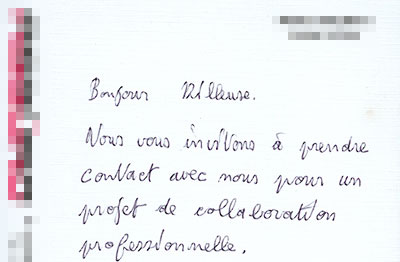 Bonjour
Nous vous invitons à prendre
contact avec nous pour un
projet de collaboration
professionnelle.